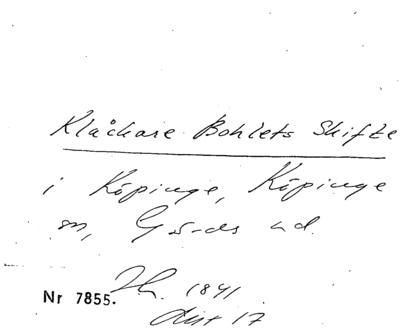 Klåckare Bohlets Skifte
i Köpinge, Köpinge
sn, Gärds hd.
1841
Nr 7855.
dist 17